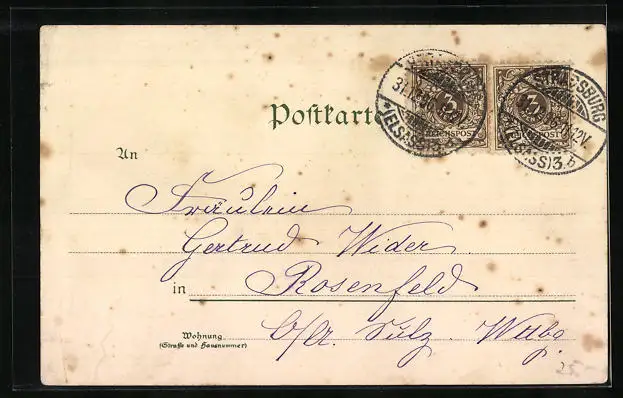 Postkarte
3
REICHSPOST
3
REICHSPOST
STRASSBURG
(ELSASS) 3.b
An
Fräulein
Gertrud Wider
in Rosenfeld
Wohnung
(Straße und Hausnummer)
O/A. Sulz. Wttbg
25.-